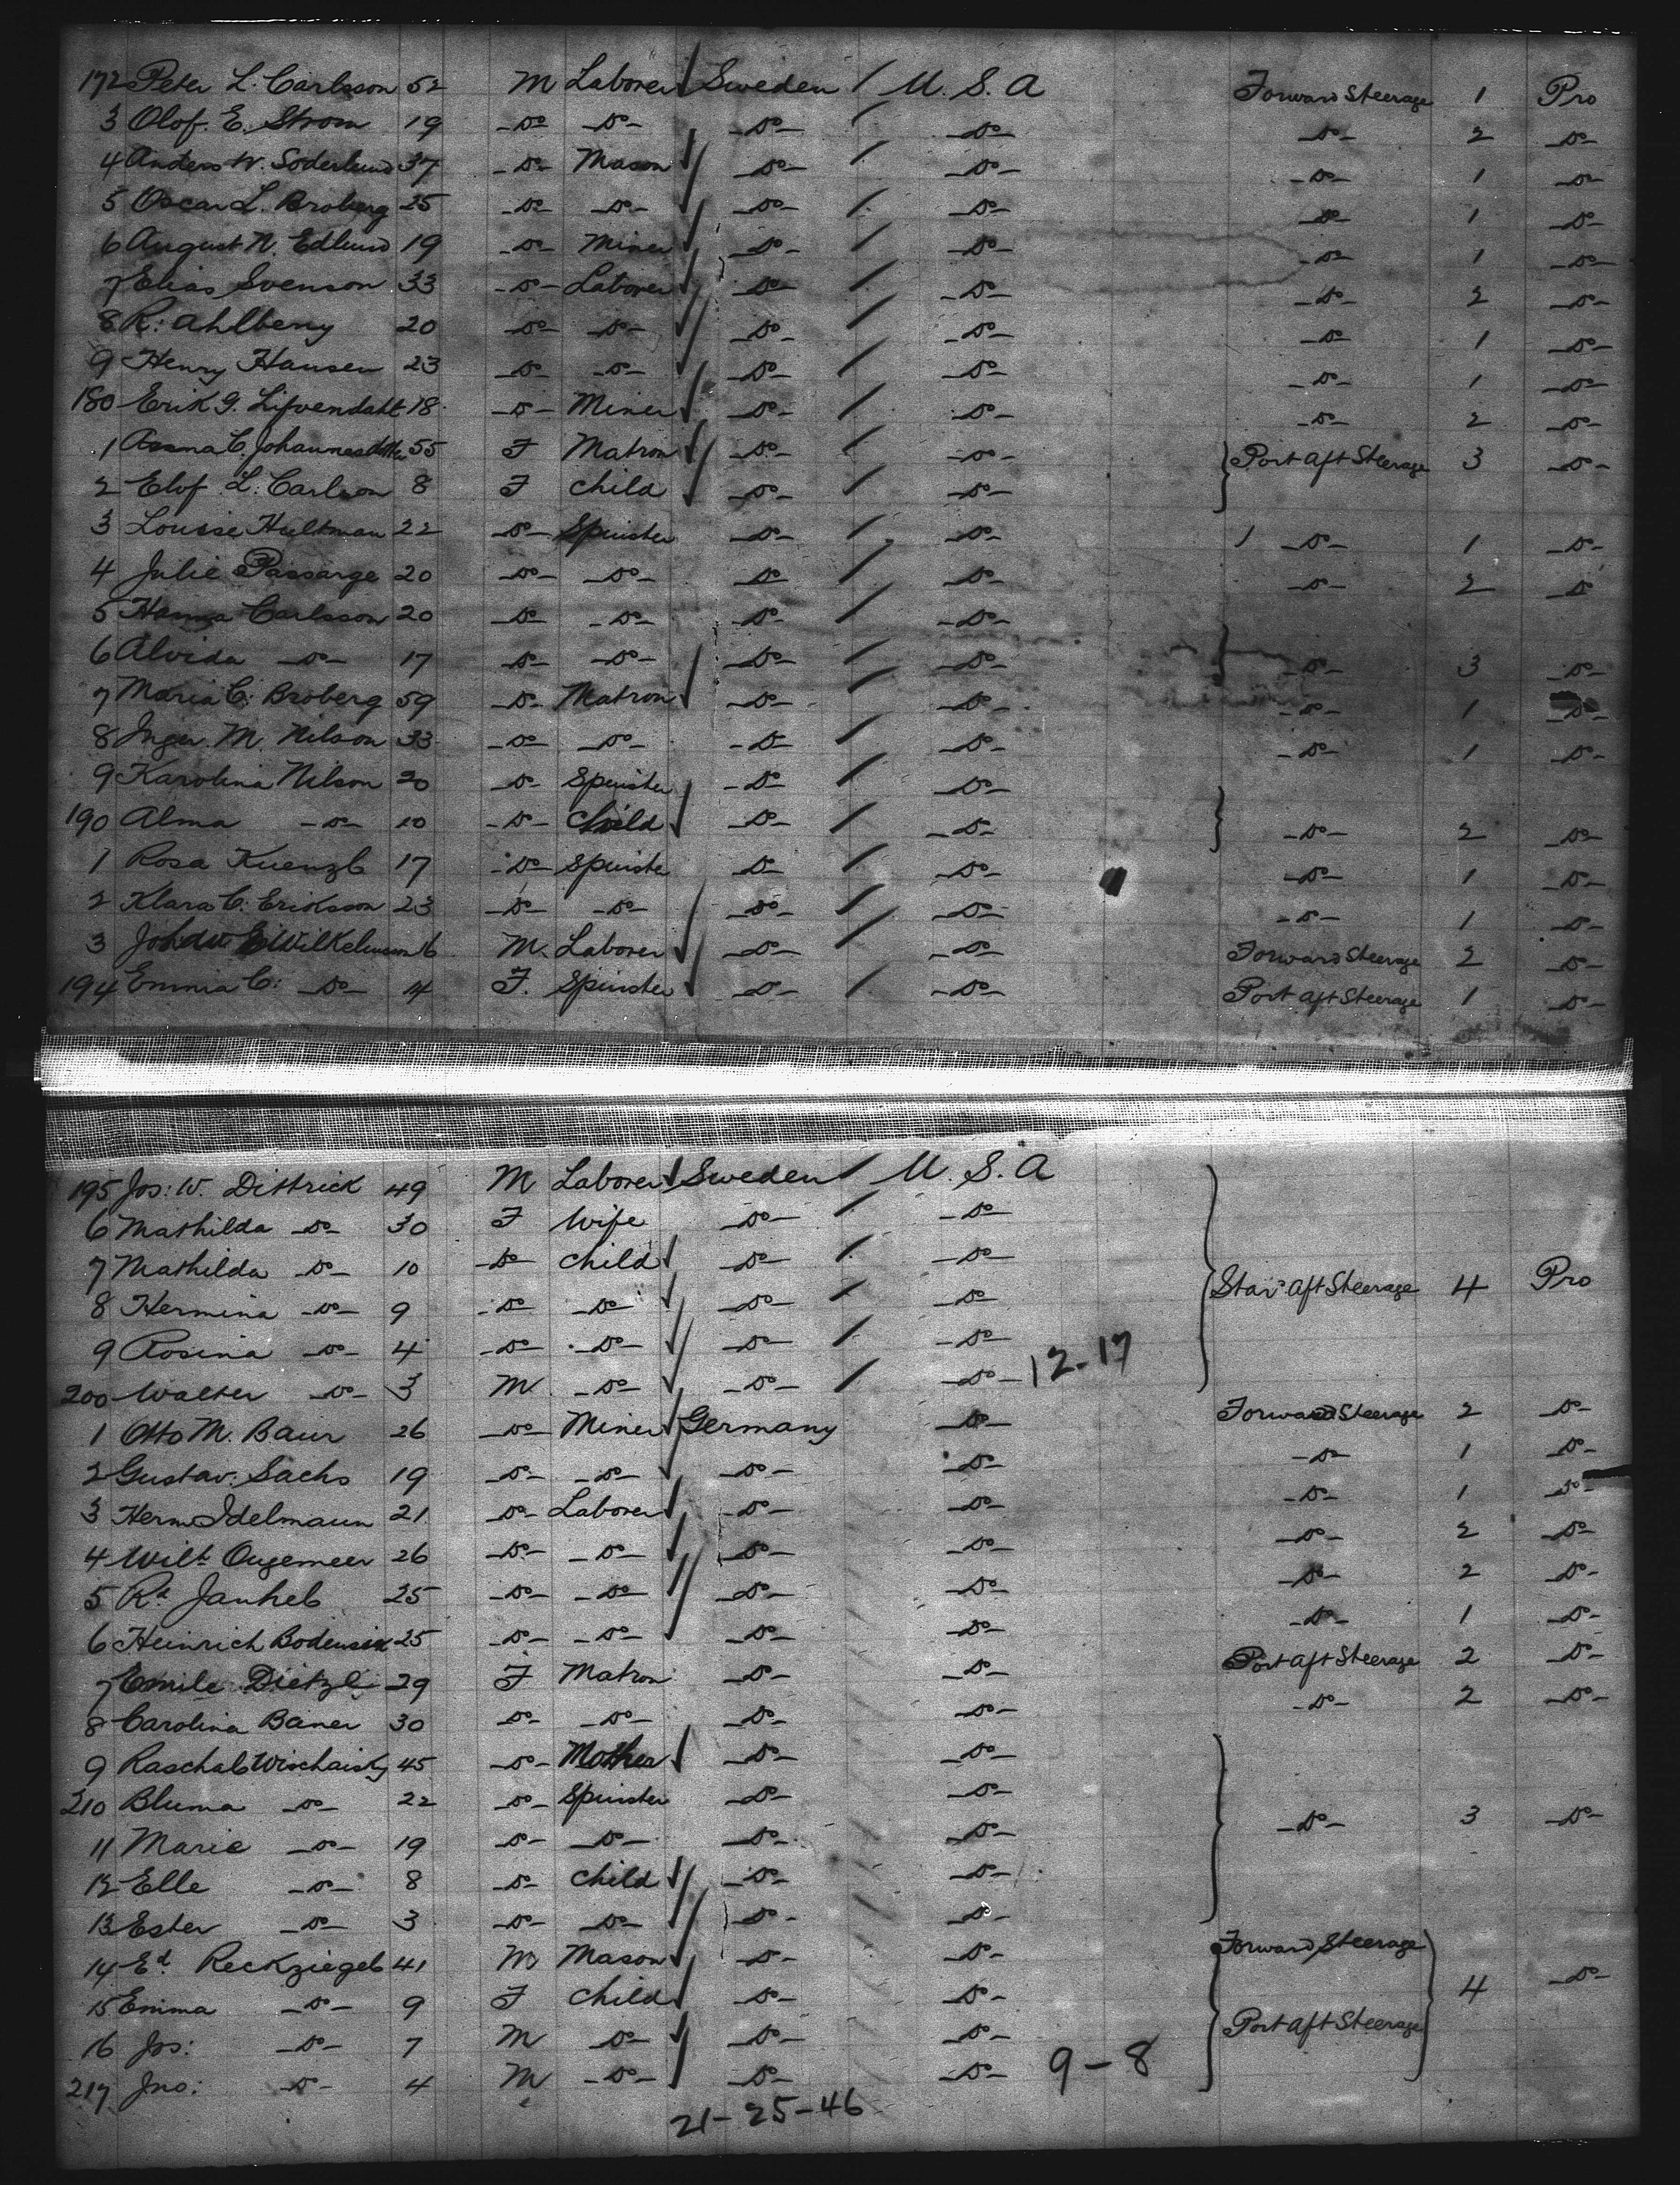 172 Peter L. Carlsson 52 M Laborer Sweden / U. S. A Forward Steerage 1 Pro
3 Olof. E. Strom 19 -do- -do- -do- / -do- -do- 2 -do-
4 Anders W. Soderlund 37 -do- Mason -do- / -do- -do- 1 -do-
5 Oscar L. Broberg 25 -do- -do- -do- / -do- -do- 1 -do-
6 August N. Edlund 19 -do- Miner -do- / -do- -do- 1 -do-
7 Elias Svenson 33 -do- Laborer -do- / -do- -do- 2 -do-
8 R: Ahlberg 20 -do- -do- -do- / -do- -do- 1 -do-
9 Henry Hansen 23 -do- -do- -do- / -do- -do- 1 -do-
180 Erik G. Lifvendahl 18 -do- Miner -do- / -do- -do- 2 -do-
1 C. Johannesdotter 55 F Matron -do- / -do- Port aft Steerage 3 -do-
2 Elof L. Carlson 8 F child -do- / -do-
3 Louise Hultman 22 -do- Spinster -do- / -do- -do- 1 -do-
4 Julie Passarge 20 -do- -do- -do- / -do- -do- 2 -do-
5 Hanna Carlsson 20 -do- -do- -do- / -do-
6 Alvida -do- 17 -do- -do- -do- / -do- -do- 3 -do-
7 Maria C. Broberg 59 -do- Matron -do- / -do- -do- 1 -do-
8 Inger. M. Nilson 33 -do- -do- -do- / -do- -do- 1 -do-
9 Karolina Nilson 20 -do- Spinster -do- / -do-
190 Alma -do- 10 -do- child -do- / -do- -do- 2 -do-
1 Rosa Kuenzl 17 -do- Spinster -do- / -do- -do- 1 -do-
2 Klara C: Eriksson 23 -do- -do- -do- / -do- -do- 1 -do-
3 E Wilkelmson 16 M. Laborer -do- / -do- Forward Steerage 2 -do-
194 Emma C: -do- 14 F. Spinster -do- / -do- Port aft Steerage 1 -do-
195 Jos: W. Dittrick 49 M Laborer Sweden / U. S. A
6 Mathilda -do- 30 F Wife -do- / -do-
7 Mathilda -do- 10 -do- child -do- / -do- Star aft Steerage 4 Pro
8 Hermina -do- 9 -do- -do- -do- / -do-
9 Rosina -do- 4 -do- -do- -do- / -do-
200 Walter -do- 3 M -do- -do- / -do- 12-17
1 Otto M. Baur 26 -do- Miner Germany -do- Forward Steerage 2 -do-
2 Gustav: Sachs 19 -do- -do- -do- -do- -do- 1 -do-
3 Herm Idelmann 21 -do- Laborer -do- -do- -do- 1 -do-
4 Wilh Ougemeer 26 -do- -do- -do- -do- -do- 2 -do-
5 Rt Janheb 25 -do- -do- -do- -do- -do- 2 -do-
6 Heinrich Bodensiek 25 -do- -do- -do- -do- -do- 1 -do-
7 Emile Dietzel 29 F Matron -do- -do- Port aft Steerage 2 -do-
8 Carolina Baner 30 -do- -do- -do- -do- -do- 2 -do-
9 Raschal Wischaisky 45 -do- Mother -do- -do-
210 Bluma -do- 22 -do- Spinster -do- -do-
11 Marie -do- 19 -do- -do- -do- -do- -do- 3 -do-
12 Elle -do- 8 -do- child -do- -do-
13 Ester -do- 3 -do- -do- -do- -do-
14 Ed Reckziegel 41 M Mason -do- -do- Forward Steerage 4 -do-
15 Emma -do- 9 F child -do- -do-
16 Jos: -do- 7 M -do- -do- -do- Port aft Steerage
217 Jno: -do- 4 M -do- -do- -do- 9-8
21-25-46